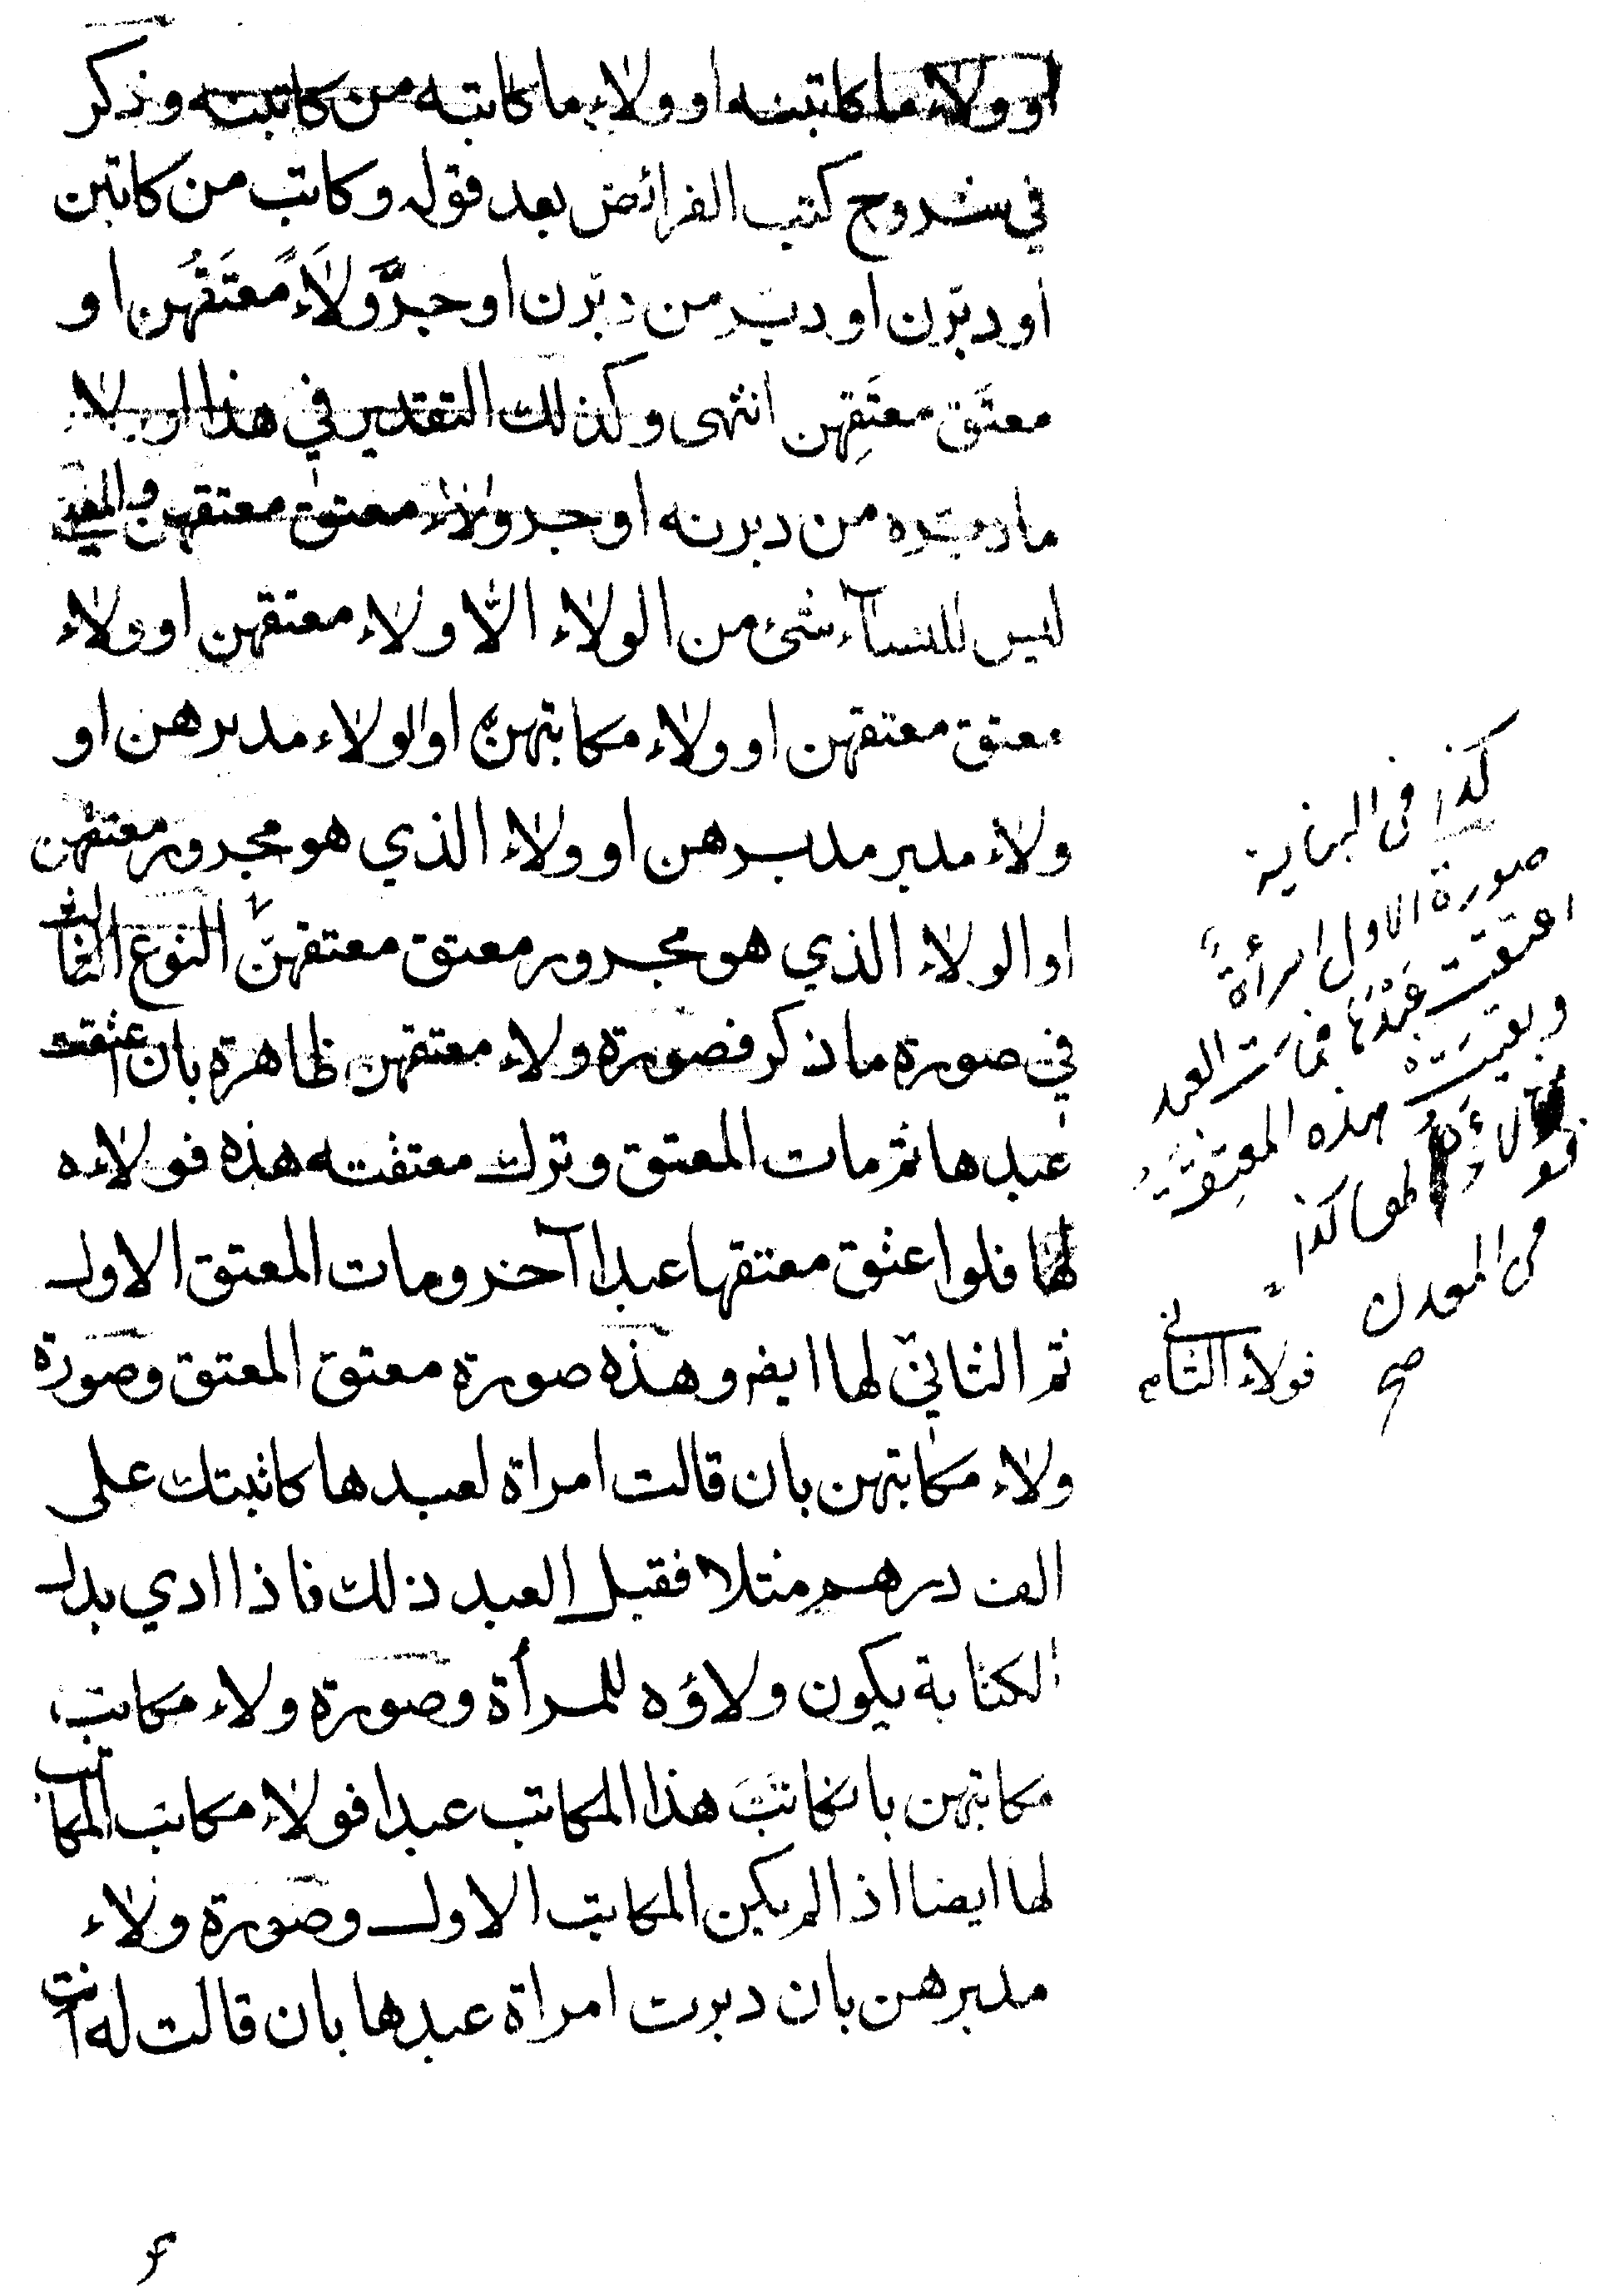 او ولاء ما كاتبنه او ولاء ما كاتبه من كاتبنه وذكر
في شروح كتب الفرائض بعد قوله وكاتب من كاتبن
او دبرن او دبر من دبرن او جرَّ ولاَءً مُعتَقُهن او
معتَق معتَقِهن انتهى وكذلك التقدير في هذا او ولاء
ما دبره من دبرنه او جر ولاء معتق معتقهن والمعنى
ليس للنسآء شئ من الولاء الّا ولاء معتقهن او ولاء
معتق معتقهن او ولاء مكاتبهن او الولاء مدبرهن او
ولاء مدبر مدبرهن او ولاء الذي هو مجرور معتقهن
او الولاء الذي هو مجرور معتق معتقهنّ النوع الثالث
في صورة ما ذكر فصورة ولاء معتقهن ظاهرة بان اعتقت
عبدها ثم مات المعتق وترك معتقته هذه فولاءه
لها فلو اعتق معتقها عبدا آخر ومات المعتق الاول
ثم الثاني لها ايضا وهذه صورة معتق المعتق وصورة
ولاء مكاتبهن بان قالت امراة لعبدها كاتبتك على
الف درهم مثلا فقبل العبد ذلك فاذا ادي بدل
الكتابة يكون ولاؤه للمرأة وصورة ولاء مكاتب
مكاتبهن بان كاتَبَ هذا المكاتب عبدا فولاء مكاتب المكاتب
لها ايضا اذا لم يكن المكاتب الاول وصورة ولاء
مدبرهن بان دبرت امراة عبدها بان قالت له انت
كذا في البناية
صورة الاول امرأة
اعتقت عَبْدَهَا فماتَ العبد
وبقيَتْ هذه المعتِقَة
فولاءُه لها كذا
في المعدن
صح
فولاء الثاني